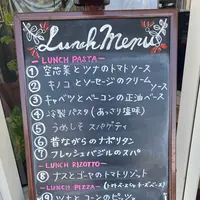 Lunch Menu
-LUNCH PASTA-
① 空芯菜とツナのトマトソース
② キノコとソーセージのクリームソース
③ キャベツとベーコンの正油ベース
④ 冷製パスタ(あっさり塩味)
⑤ うめしそ スパゲティ
⑥ 昔ながらのナポリタン
⑦ フレッシュバジルのスパ
-LUNCH RIZOTTO-
⑧ ナスとゴーヤのトマトリゾット
-LUNCH PIZZA-
⑨ ツナとコーンのピッツァ